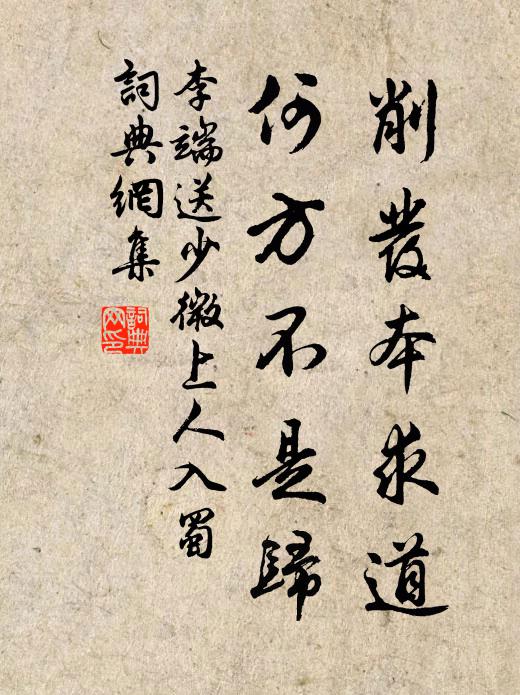 削發本求道
何方不是歸
李端送少微上人入蜀
詞典網集
詞典
网印